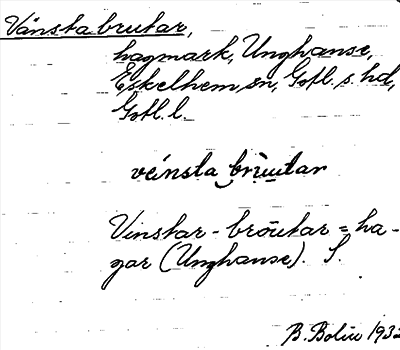 Vänsta brutar,
hagmark, Unghanse,
Eskelhem sn, Gotl. s. hd,
Gotl. l.
veínsta brùutar
Vinstar - bròutar = ha-
gar (Unghanse). S.
B. Bolin 1932